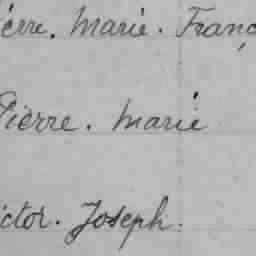 ierre. Marie. Franç
Pierre. Marie
ictor. Joseph.